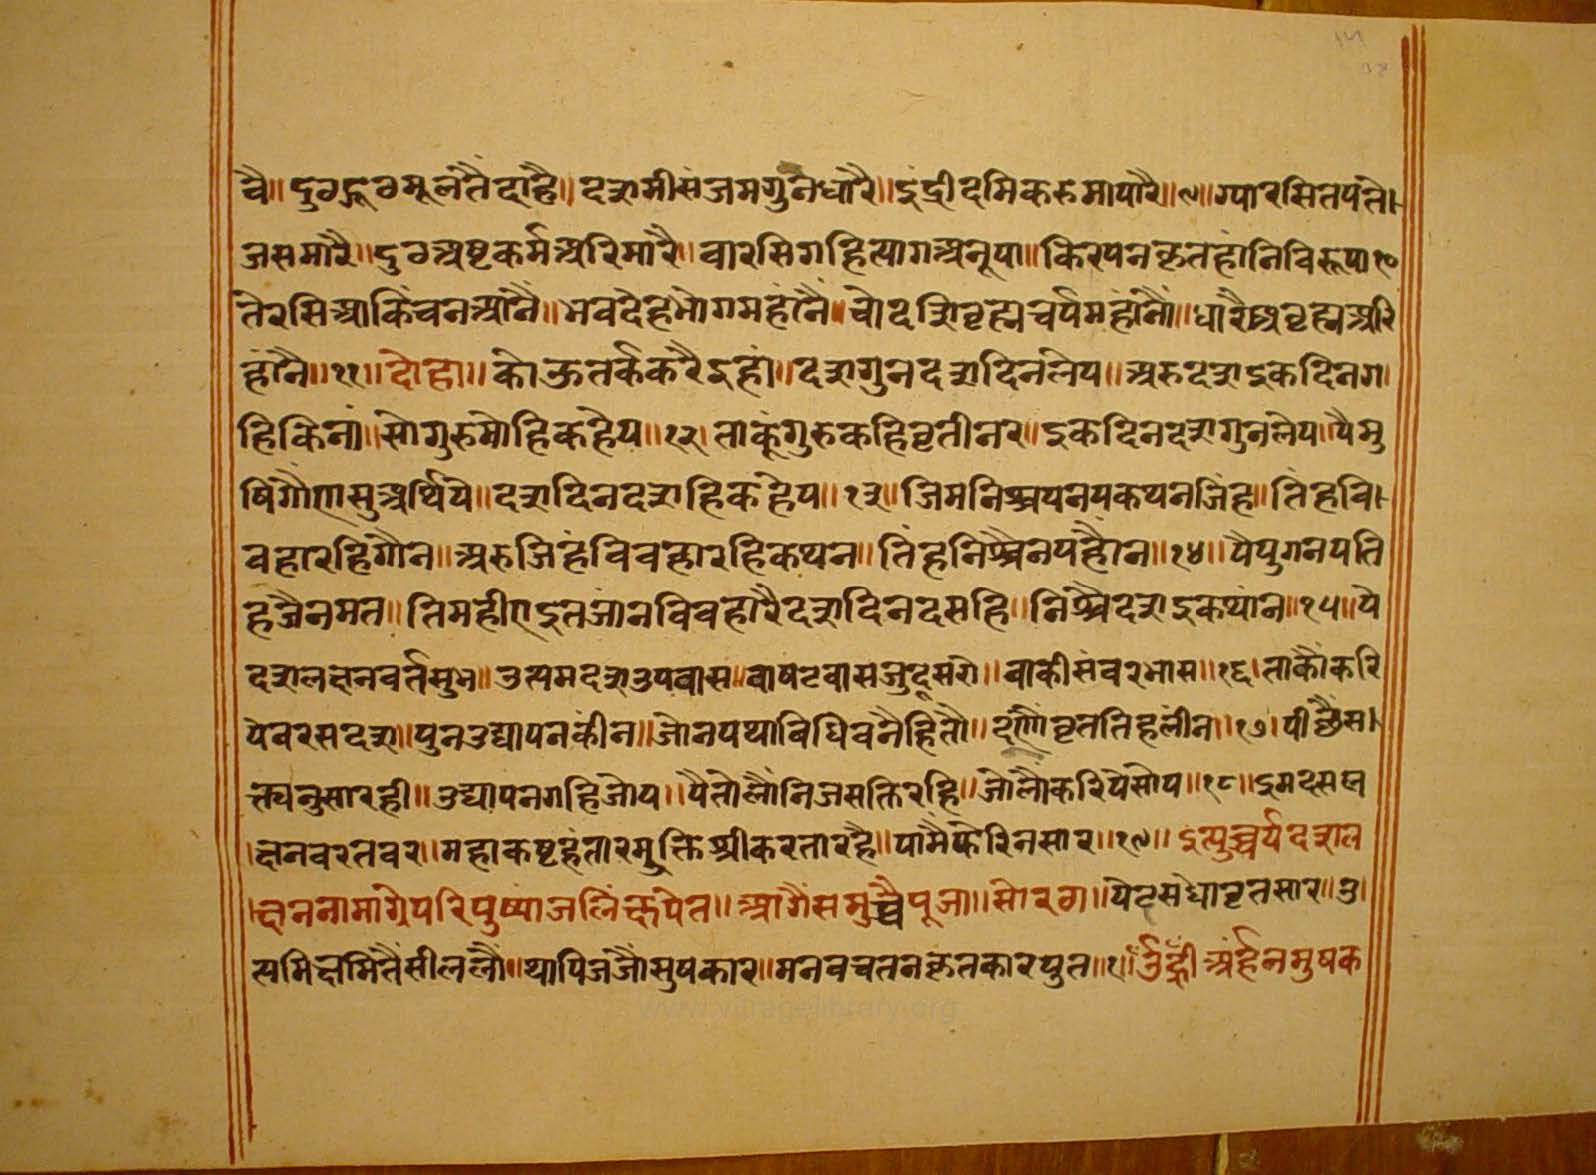 वै॥ दुठद्रूठमूलतैंदाहै॥ दशमीसंजमगुनधारै॥ इंद्रीदमिकरुमापारै॥९॥ ग्यारसितपतै।
जसमारै॥ दुठअष्टकर्मअरिमारै॥ वारसिगहित्यागअनूपा॥ किरपनकृतहांनिविरूपा१०
तेरसिआकिंचनआंनै॥ भवदेहभोगमहांनै॥ चोदशिवृह्मचर्यमहांनौ॥ धारैअवृह्मअरि
हांनै॥११॥ दोहा॥ कोऊतर्ककरैइहां॥ दशगुनदशदिनलेय॥ अरुदशइकदिनग।
हिकिनां॥ सोगुरुमोहिकहैय॥१२। ताकूंगुरुकहिवृतीनर॥ इकदिनदशगुनलेय॥ पैमु
षिगौणसुअर्थिये॥ दशदिनदशहिकहेय॥१३॥ जिमनिश्चयनयकथनजिंह॥ तिंहवि।
वहारहिगौन॥ अरुजिंहविवहारहिकथन॥ तिंहनिश्चैनयहौंन॥१४॥ पैयुगनयति
हजैनमत॥ तिमहीगइतजांनविवहारैदशदिनदसहि॥ निश्चैदशइकथांन॥१५॥ ये
दशलक्षनवर्तसुभ॥ उत्यमदशउपवास॥ वाषटवासजुदूसरो॥ वाकीसंवरभास॥१६। ताकौंकरि
येवरसदश॥ पुनउद्यापनकींन॥ जोनयथाविधिवनैहितौ॥ दूणौवृततिहलींन॥१७। पीछैंस।
क्त्यनुसारही॥ उद्यापनगहिजोय॥ पैतोलौंनिजसक्तिरहि॥ जोलौकरियेसोय॥१८॥ इमदसल
।क्षनवरतवर॥ महाकष्टहंतारमुक्तिश्रीकरतारहै॥ यामैंफेरिनसार॥१९॥ इत्युच्चर्यदशल
।क्षननामाग्रेपरिपुष्पांजलिंक्षपेत॥ आगैंसमुच्चैपूजा॥ सोरठा॥ येदसधावृतसार॥ उ।
त्यमिक्षमितैंसीललौं॥ थापिजजौंसुषकार॥ मनवचतनकृतकारयुत॥१॥ उँह्रीं अर्हनमुषक
www.virragelibrary.org